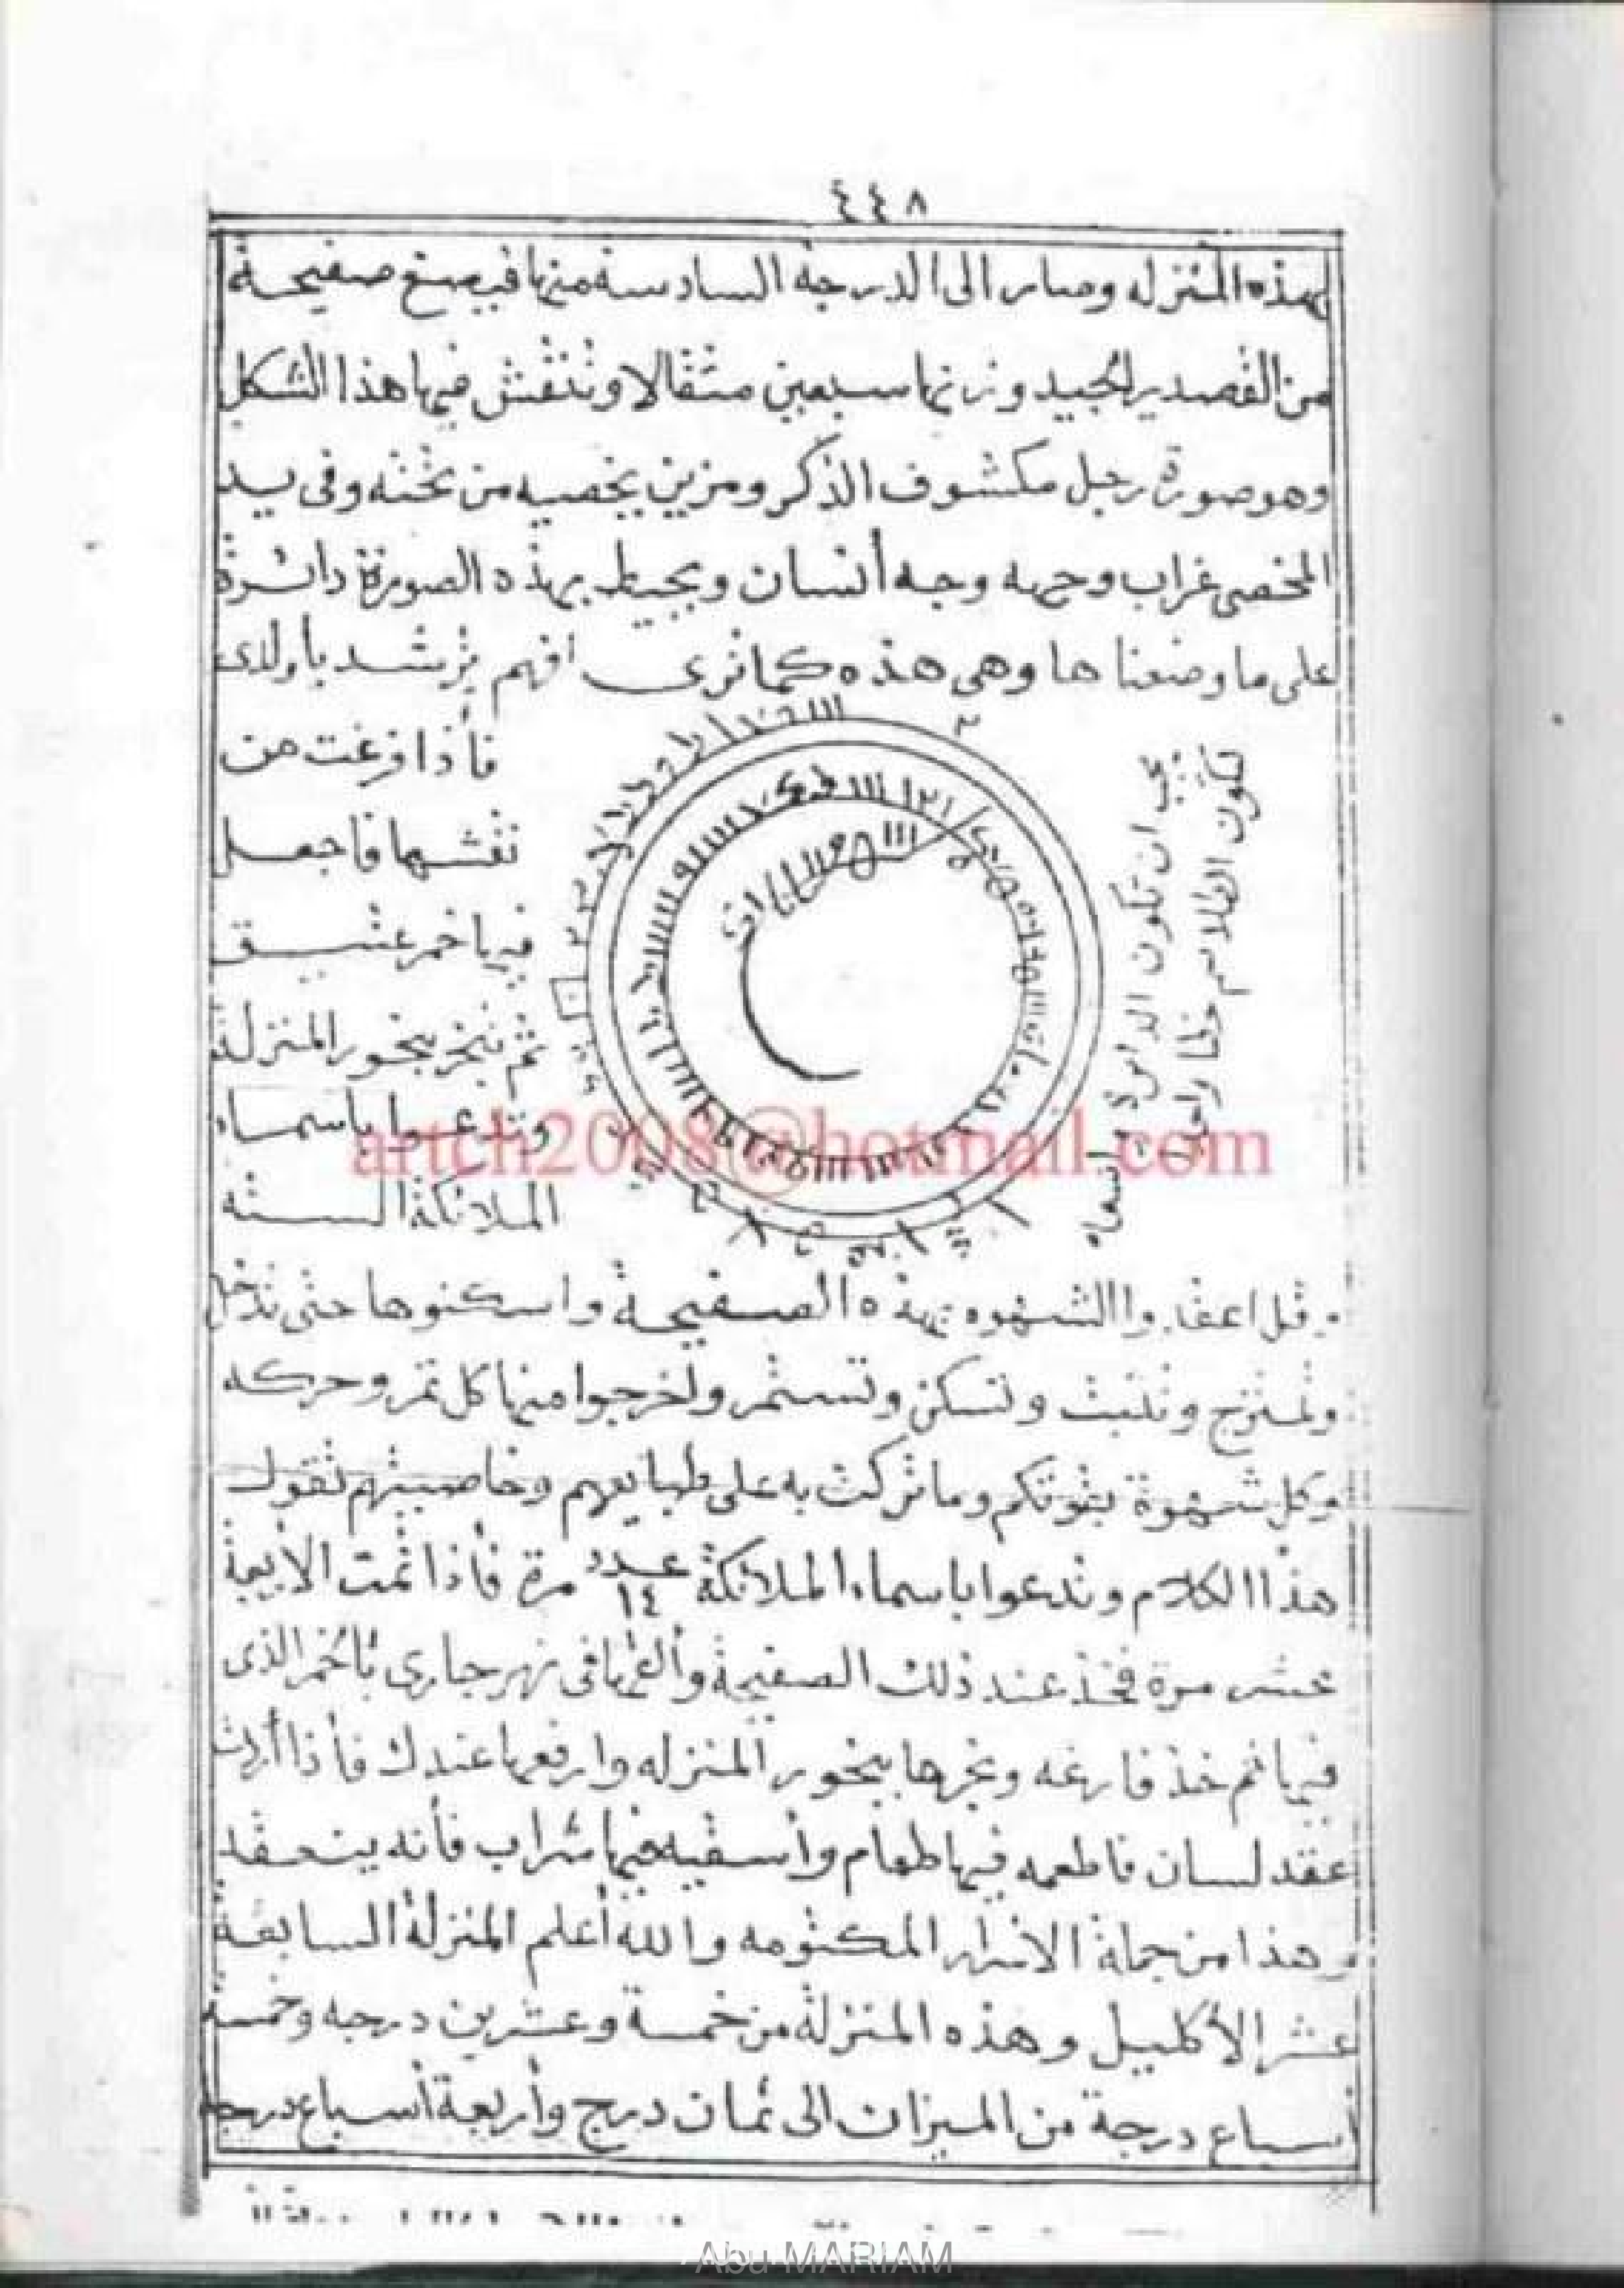 ٤٤٨
بهذه المنزله وصار الى الدرجة السادسة منها فيصنع صفيحة
من القصدير الجيد وزنها سبعين مثقالا وتنقش فيها هذا الشكل
وهو صورة رجل مكشوف الذكر ومزين يخصيه من تحته وفى يد
المخصى غراب وجهه وجه أنسان ويحيط بهذه الصورة دائرة
على ما وضعنا ها وهى هذه كما ترى افهم ترشد ياولدى
فأذا فرغت من
نقشها فاجعل
فيها خمر عتيق
ثم تبخر ببخور المنزلة
وتدعوا باسماء
الملائكة الستة
يجب ان تكون الدائرة
لتكون الطلاسم خطا واحد
وقل اعقدوا الشهوه بهذه الصفيحة واسكنوها حتى تدخل
وتمتزج وتثبت وتسكن وتستمر واخرجوا منها كل تمر وحركه
وكل شهوة بقوتكم وما تركت به على طبايعهم وخاصيتهم تقول
هذا الكلام وتدعوا باسماء الملائكة عدد ١٤ مرة فأذا تمت الأربعة
عشر مرة فخذ عند ذلك الصفيحة وألقها فى نهر جارى بالخمر الذى
فيها ثم خذ فارغه وبخرها ببخور المنزله وارفعها عندك فأذا أردت
عقد لسان فاطعمه فيها طعام وأسقيه فيها شراب فأنه ينعقد
وهذا من جملة الاسرار المكتومه والله أعلم المنزلة السابعة
عشر الأكليل وهذه المنزلة من خمسة وعشرين درجه وخمسة
أسباع درجة من الميزان الى ثمان درج وأربعة أسباع درجة
artch2008@hotmail.com
Abu MARIAM